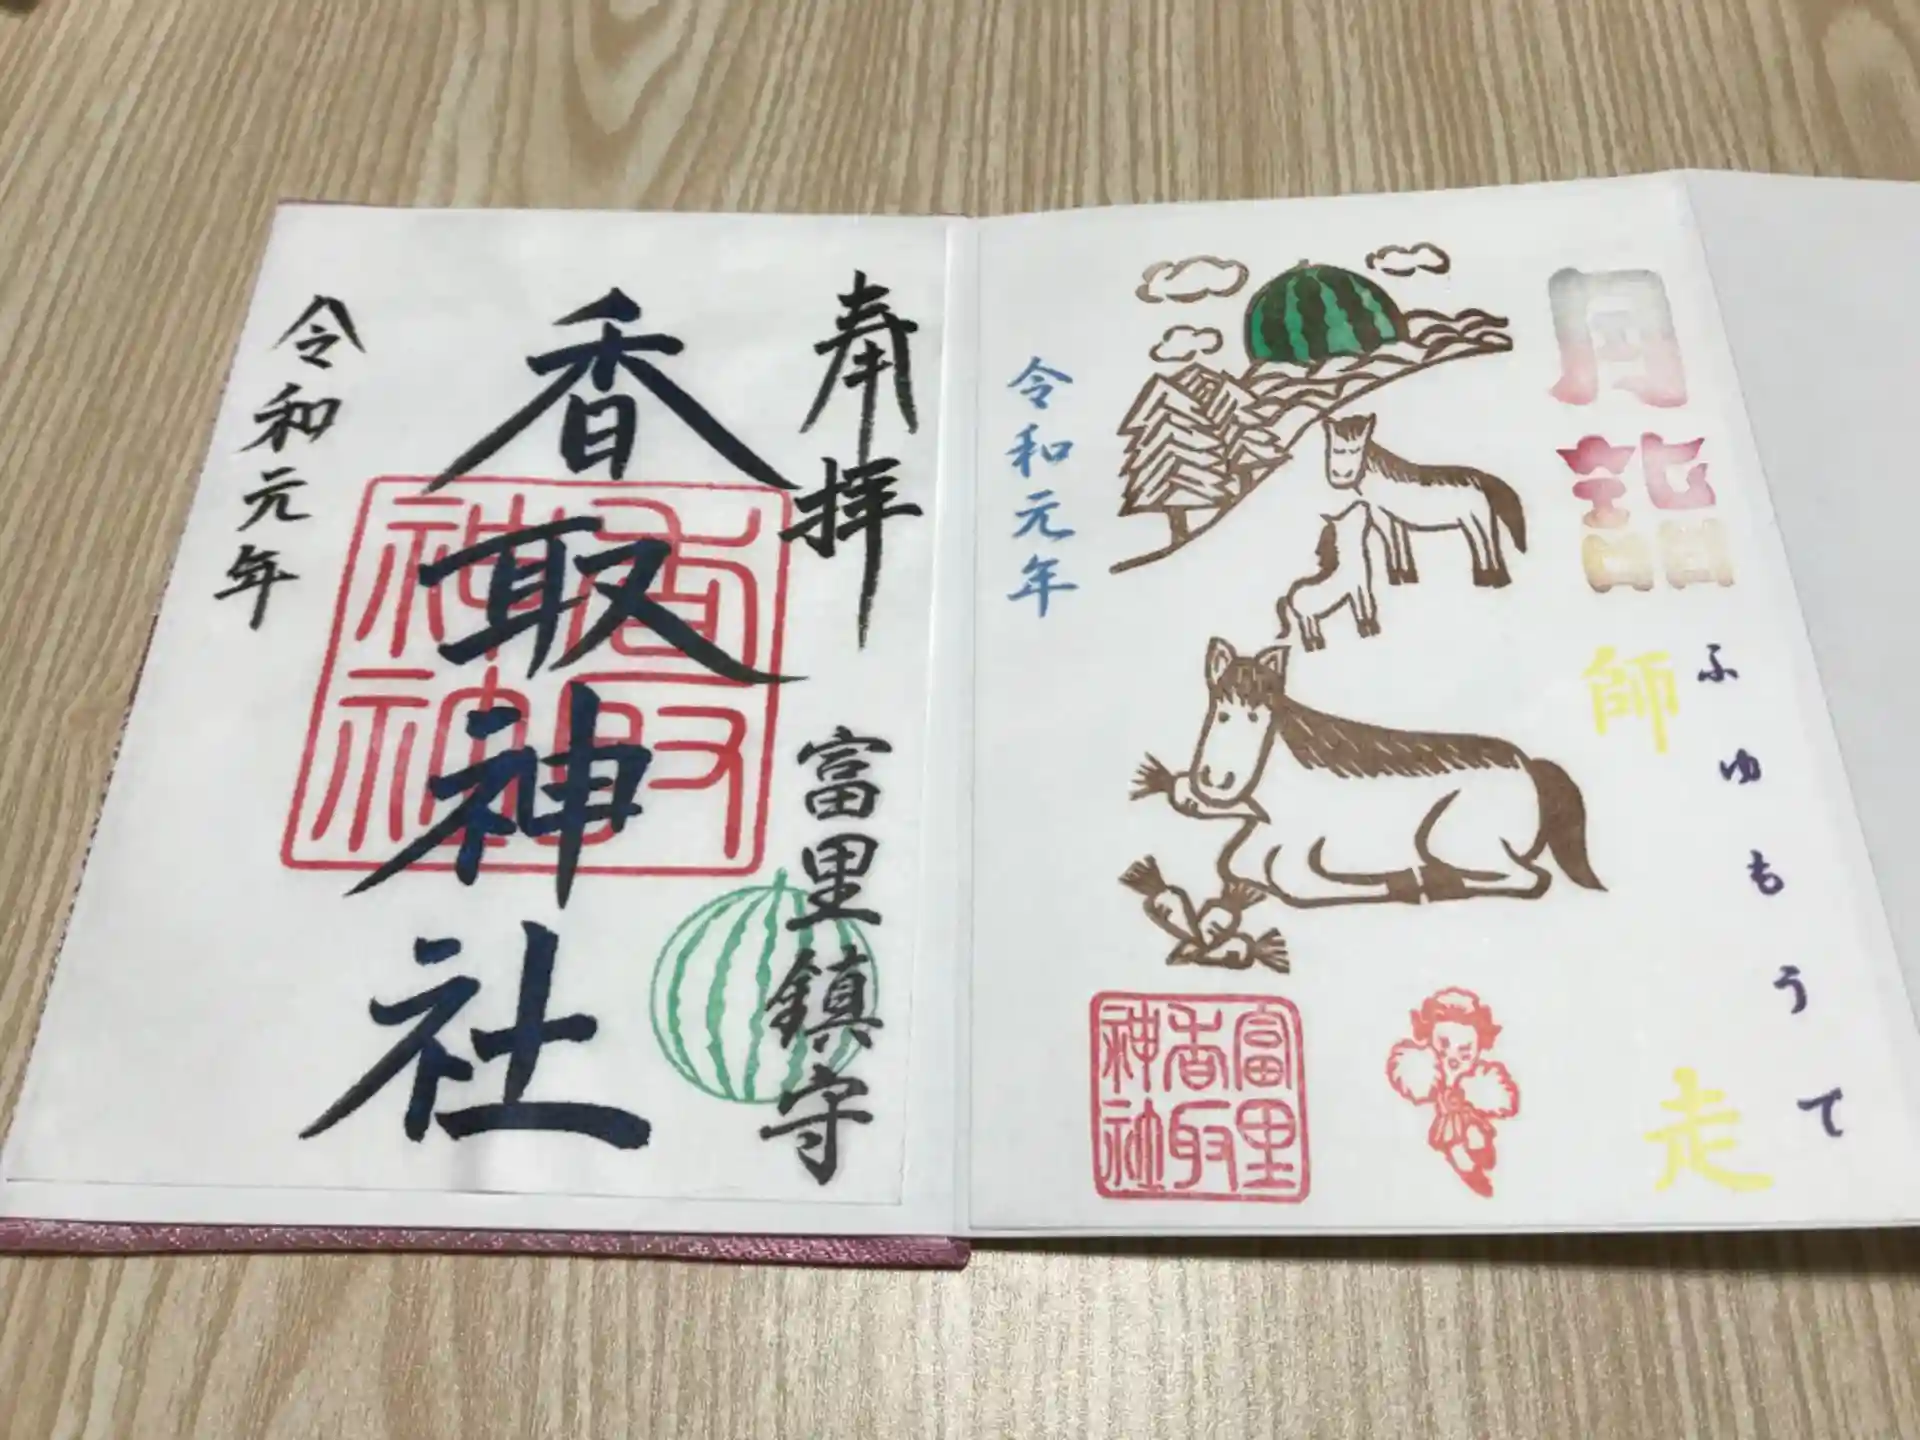 奉拝
富里鎮守
香取神社
香取神社
令和元年
月詣
ふゆもうで
師走
令和元年
富里香取神社